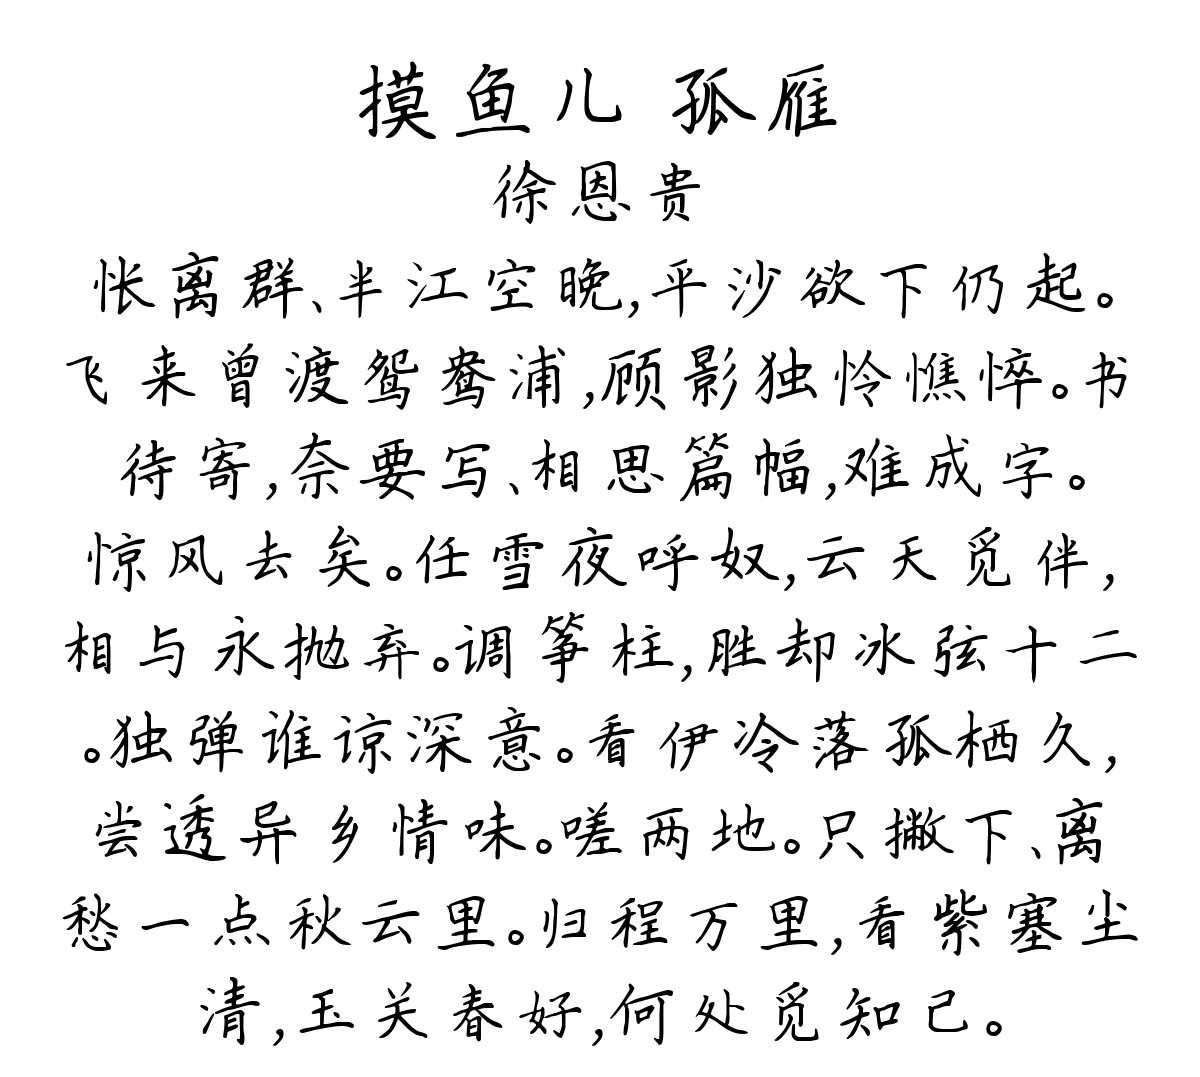 摸鱼儿 孤雁
徐恩贵
怅离群、半江空晚,平沙欲下仍起。
飞来曾渡鸳鸯浦,顾影独怜憔悴。书
待寄,奈要写、相思篇幅,难成字。
惊风去矣。任雪夜呼奴,云天觅伴,
相与永抛弃。调筝柱,胜却冰弦十二
。独弹谁谅深意。看伊冷落孤栖久,
尝透异乡情味。嗟两地。只撇下、离
愁一点秋云里。归程万里,看紫塞尘
清,玉关春好,何处觅知己。